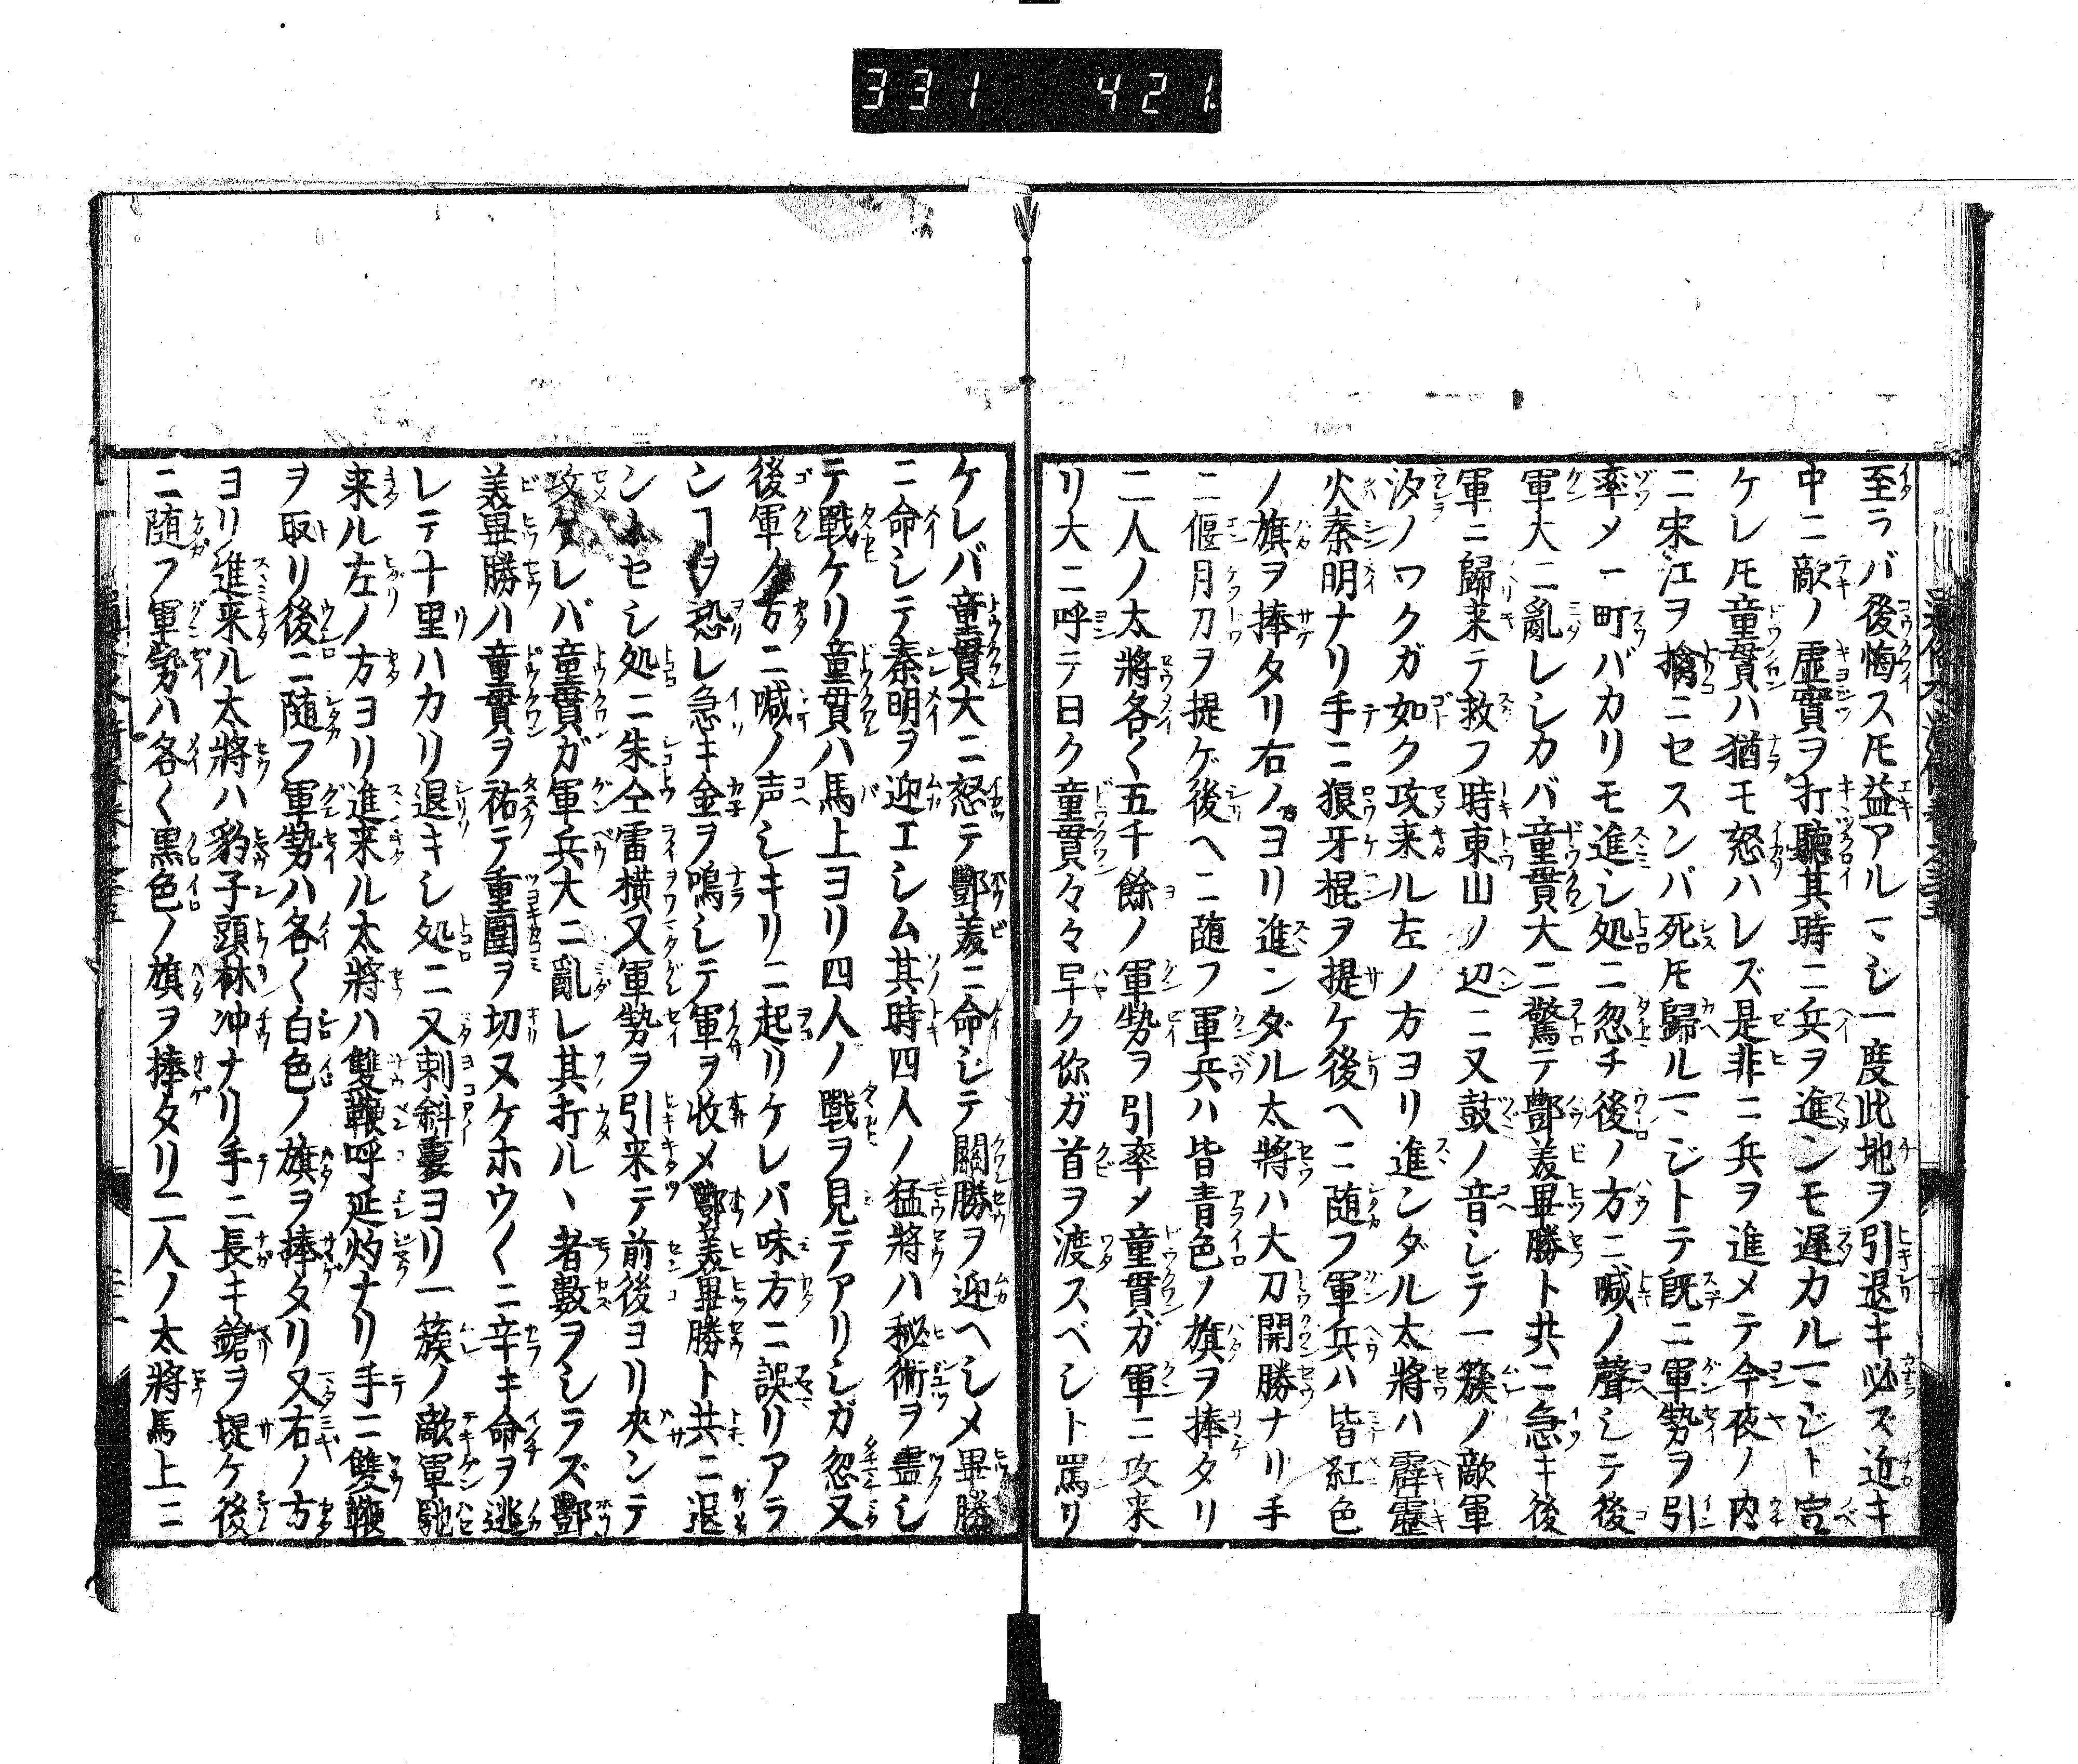 331 421
至ラバ後悔ス𪜈益アルヿジ一度此地ヲ引退キ必ズ近キ
中ニ敵ノ虚實ヲ打聽其時ニ兵ヲ進ンモ遅カルヿジト宣
ケレ𪜈童貫ハ猶モ怒ハレズ是非ニ兵ヲ進メテ今夜ノ内
ニ宋江ヲ擒ニセスンバ死𪜈歸ルヿジトテ既ニ軍勢ヲ引
率メ一町バカリモ進シ処ニ忽チ後ノ方ニ喊ノ聲シテ後
軍大ニ亂レシカバ童貫大ニ驚テ酆羙畢勝ト共ニ急キ後
軍ニ歸来テ救フ時東山ノ辺ニ又鼓ノ音シテ一簇ノ敵軍
汐ノワクガ如ク攻来ル左ノ方ヨリ進ンダル太將ハ霹靂
火秦明ナリ手ニ狼牙棍ヲ提ケ後ヘニ随フ軍兵ハ皆紅色
ノ旗ヲ捧タリ右ノ方ヨリ進ンダル太將ハ大刀開勝ナリ手
ニ偃月刀ヲ提ゲ後ヘニ随フ軍兵ハ皆青色ノ旗ヲ捧タリ
二人ノ太將各〱五千餘ノ軍勢ヲ引率メ童貫ガ軍ニ攻来
リ大ニ呼テ曰ク童貫々々早ク你ガ首ヲ渡スベシト罵リ
ケレバ童貫大ニ怒テ酆羙ニ命シテ關勝ヲ迎ヘシメ畢勝
ニ命シテ秦明ヲ迎エシム其時四人ノ猛將ハ秘術ヲ盡シ
テ戰ケリ童貫ハ馬上ヨリ四人ノ戰ヲ見テアリシガ忽又
後軍ノ方ニ喊ノ声シキリニ起リケレバ味方ニ誤リアラ
ンヿヲ恐レ急キ金ヲ鳴シテ軍ヲ收メ酆羙畢勝ト共ニ退
ンﾄセシ処ニ朱仝雷横又軍勢ヲ引来テ前後ヨリ夾ンテ
攻ケレバ童貫ガ軍兵大ニ亂レ其打ルヽ者數ヲシラズ酆
羙畢勝ハ童貫ヲ祐テ重圍ヲ切ヌケホウ〱ニ辛キ命ヲ逃
レテ十里ハカリ退キシ処ニ又刺斜裏ヨリ一簇ノ敵軍馳
来ル左ノ方ヨリ進来ル太將ハ雙鞭呼延灼ナリ手ニ雙鞭
ヲ取リ後ニ随フ軍勢ハ各〱白色ノ旗ヲ捧タリ又右ノ方
ヨリ進来ル太將ハ豹子頭林冲ナリ手ニ長キ鎗ヲ提ケ後
ニ随フ軍勢ハ各〱黒色ノ旗ヲ捧タリ二人ノ太將馬上ニ